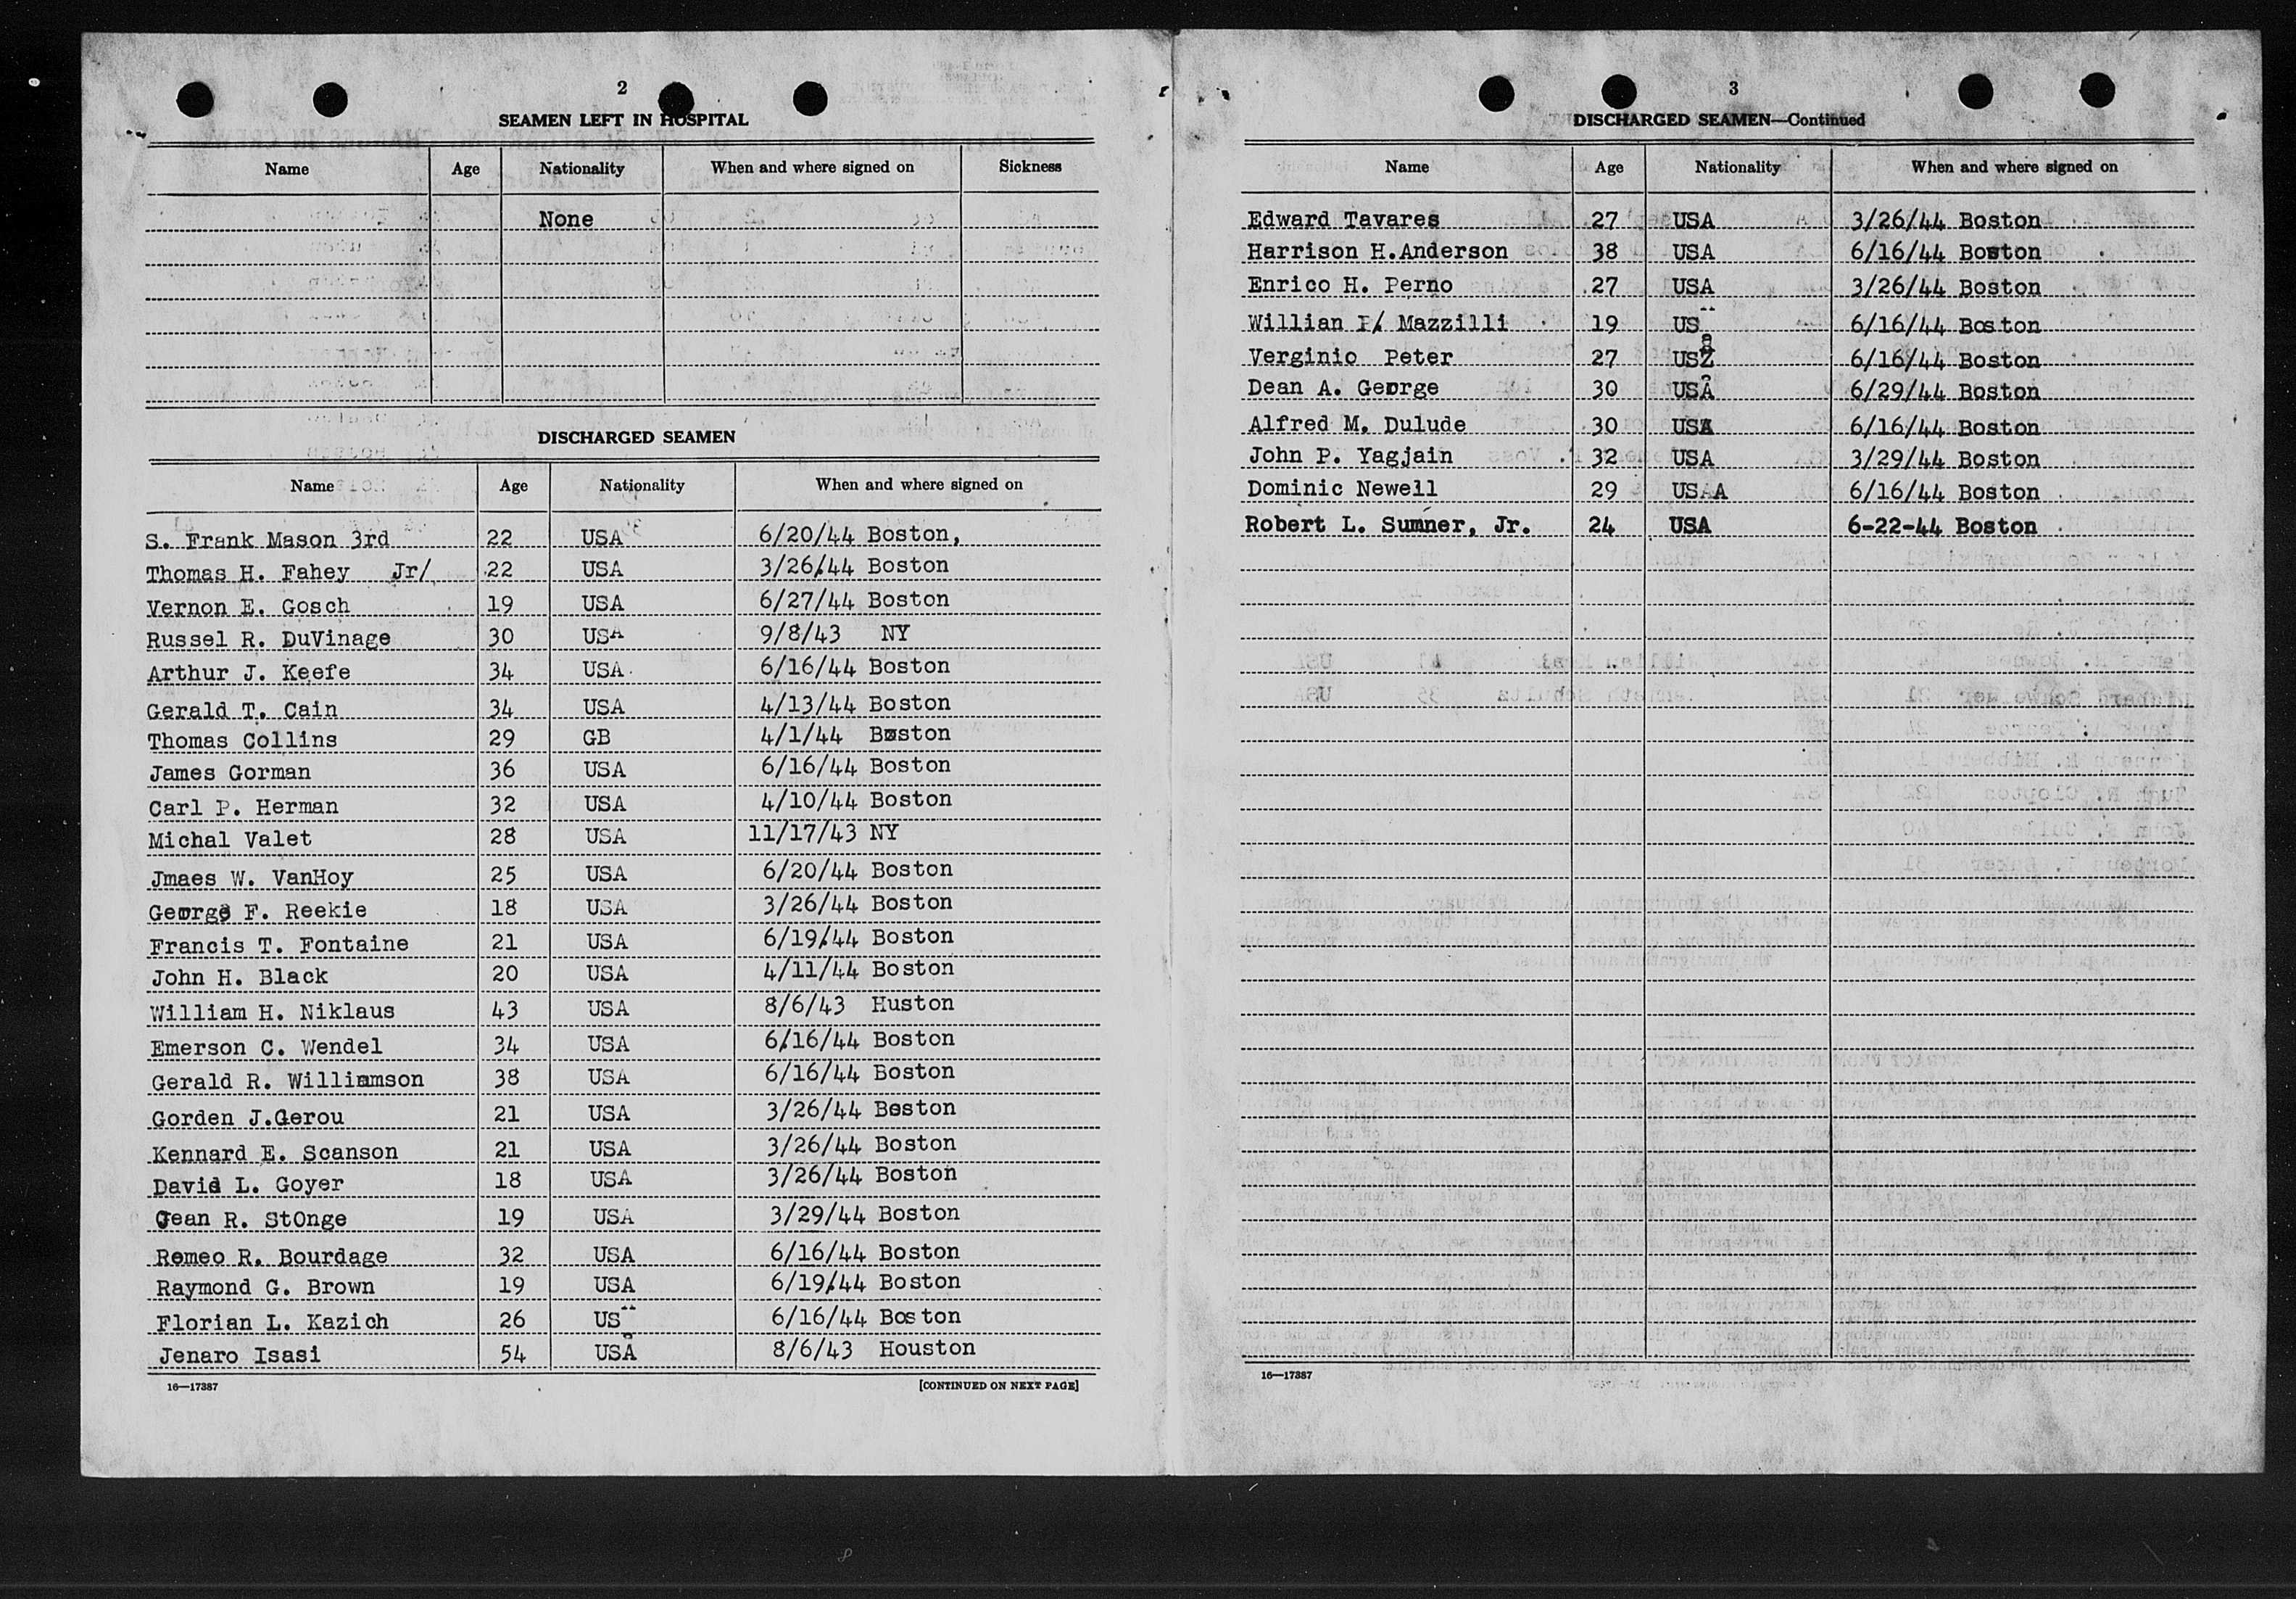 2
SEAMEN LEFT IN HOSPITAL
Name Age Nationality When and where signed on Sickness
None
DISCHARGED SEAMEN
Name Age Nationality When and where signed on
S. Frank Mason 3rd 22 USA 6/20/44 Boston,
Thomas H. Fahey Jr/ 22 USA 3/26/44 Boston
Vernon E. Gosch 19 USA 6/27/44 Boston
Russel R. DuVinage 30 USA 9/8/43 NY
Arthur J. Keefe 34 USA 6/16/44 Boston
Gerald T. Cain 34 USA 4/13/44 Boston
Thomas Collins 29 GB 4/1/44 Boston
James Gorman 36 USA 6/16/44 Boston
Carl P. Herman 32 USA 4/10/44 Boston
Michal Valet 28 USA 11/17/43 NY
Jmaes W. VanHoy 25 USA 6/20/44 Boston
George F. Reekie 18 USA 3/26/44 Boston
Francis T. Fontaine 21 USA 6/19/44 Boston
John H. Black 20 USA 4/11/44 Boston
William H. Niklaus 43 USA 8/6/43 Huston
Emerson C. Wendel 34 USA 6/16/44 Boston
Gerald R. Williamson 38 USA 6/16/44 Boston
Gorden J.Gerou 21 USA 3/26/44 Boston
Kennard E. Scanson 21 USA 3/26/44 Boston
David L. Goyer 18 USA 3/26/44 Boston
Jean R. StOnge 19 USA 3/29/44 Boston
Romeo R. Bourdage 32 USA 6/16/44 Boston
Raymond G. Brown 19 USA 6/19/44 Boston
Florian L. Kazich 26 US 6/16/44 Boston
Jenaro Isasi 54 USA 8/6/43 Houston
16—17387 [CONTINUED ON NEXT PAGE]
3
DISCHARGED SEAMEN—Continued
Name Age Nationality When and where signed on
Edward Tavares 27 USA 3/26/44 Boston
Harrison H.Anderson 38 USA 6/16/44 Boston
Enrico H. Perno 27 USA 3/26/44 Boston
Willian P/ Mazzilli 19 US 6/16/44 Boston
Verginio Peter 27 USZ 6/16/44 Boston
Dean A. George 30 USA 6/29/44 Boston
Alfred M. Dulude 30 USA 6/16/44 Boston
John P. Yagjain 32 USA 3/29/44 Boston
Dominic Newell 29 USAA 6/16/44 Boston
Robert L. Sumner, Jr. 24 USA 6-22-44 Boston
16—17387